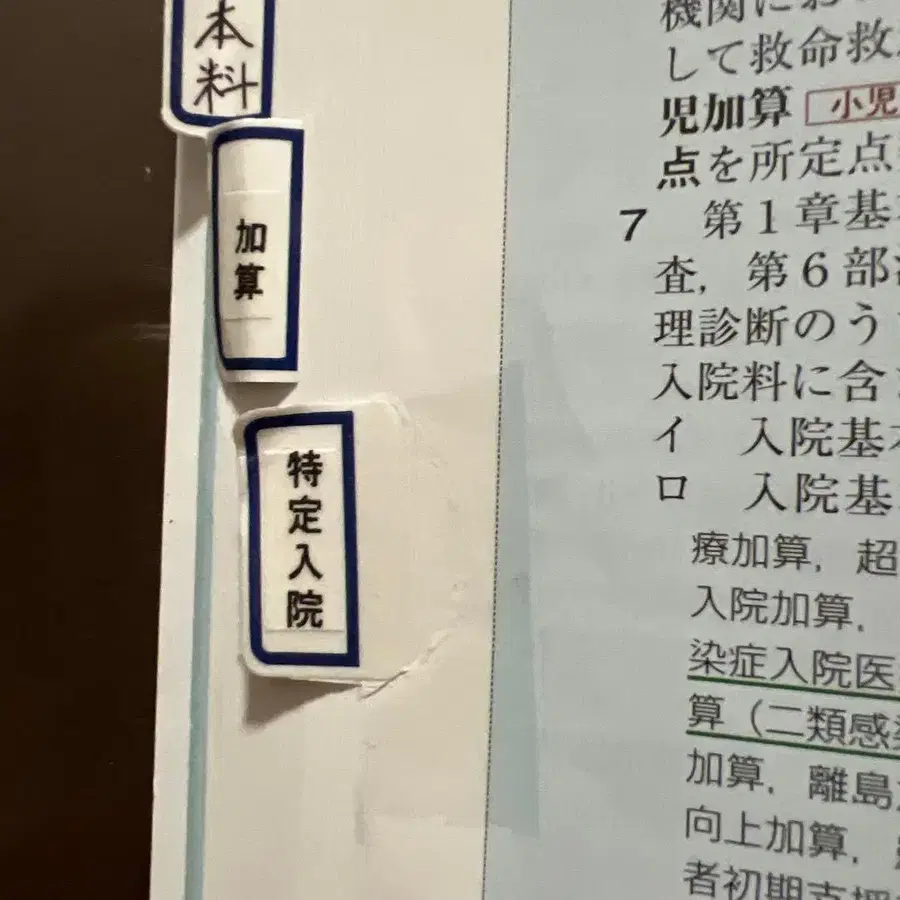 本料
加算
特定入院
機関にお
して救命救
児加算 小児
点を所定点
7 第1章基
査，第6部
理診断のう
入院料に含
イ 入院基本
ロ 入院基
療加算，超
入院加算，
染症入院医
算（二類感染
加算，離島
向上加算，
者初期支援